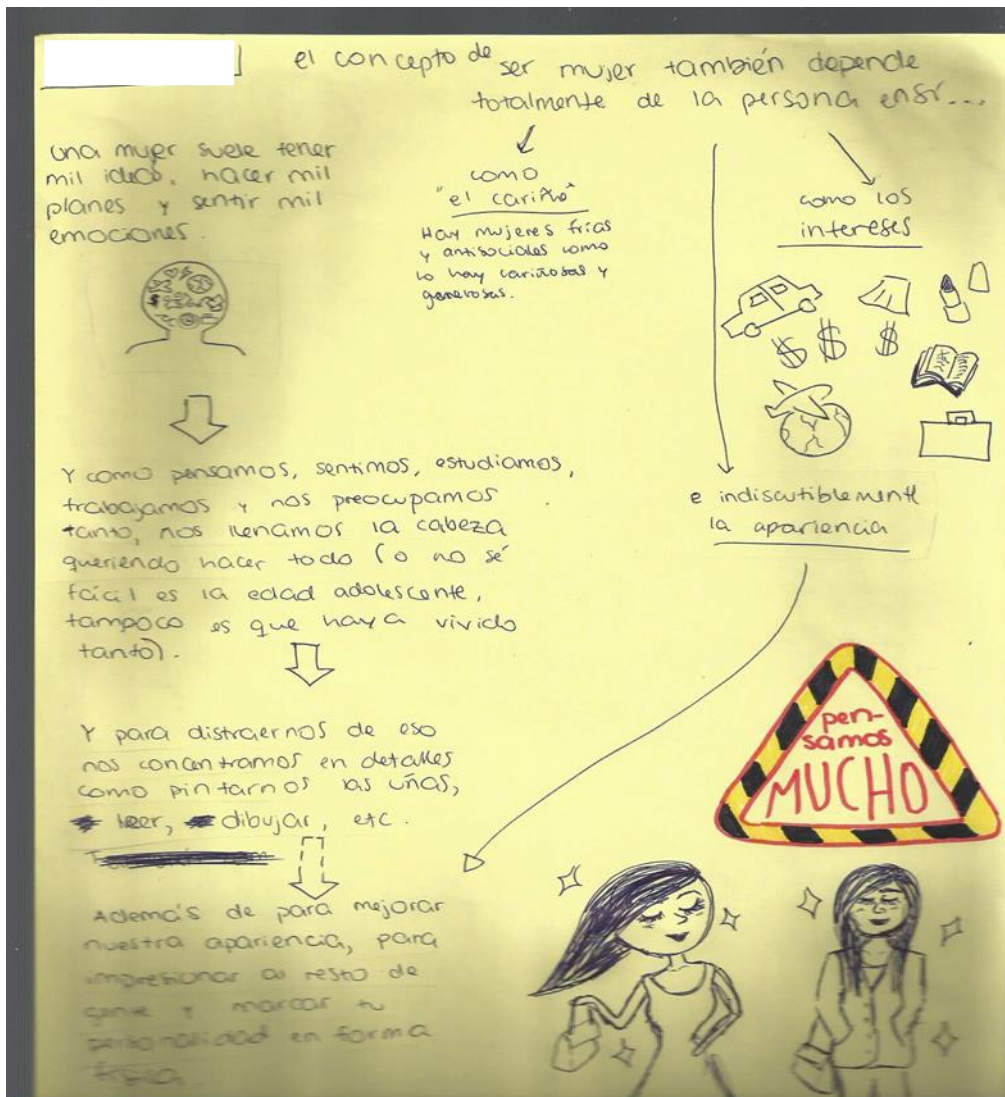 el concepto de ser mujer también depende
totalmente de la persona ensí...
una mujer suele tener
mil ideas, hacer mil
planes y sentir mil
emociones.
como
"el cariño"
Hay mujeres frías
y antisociales como
lo hay cariñosas y
generosas.
como los
intereses
$ $ $
Y como pensamos, sentimos, estudiamos,
trabajamos y nos preocupamos
tanto, nos llenamos la cabeza
queriendo hacer todo (o no sé
fácil es la edad adolescente,
tampoco es que haya vivido
tanto).
e indiscutiblemente
la apariencia
Y para distraernos de eso
nos concentramos en detalles
como pintarnos las uñas,
leer, dibujar, etc.
pen-
samos
MUCHO
Además de para mejorar
nuestra apariencia, para
impresionar al resto de
gente y marcar tu
personalidad en forma
física.